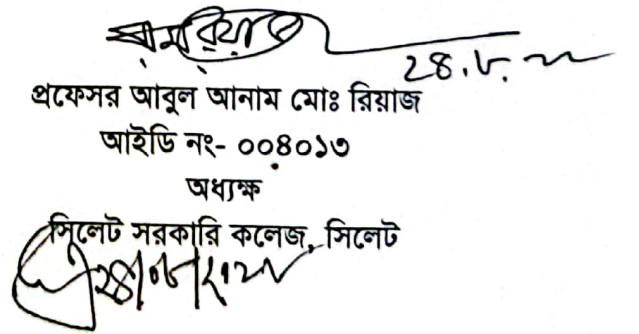 ২৪.৮.২২
প্রফেসর আবুল আনাম মোঃ রিয়াজ
আইডি নং- ০০৪০১৩
অধ্যক্ষ
সিলেট সরকারি কলেজ, সিলেট
২৪/০৮/২০২২